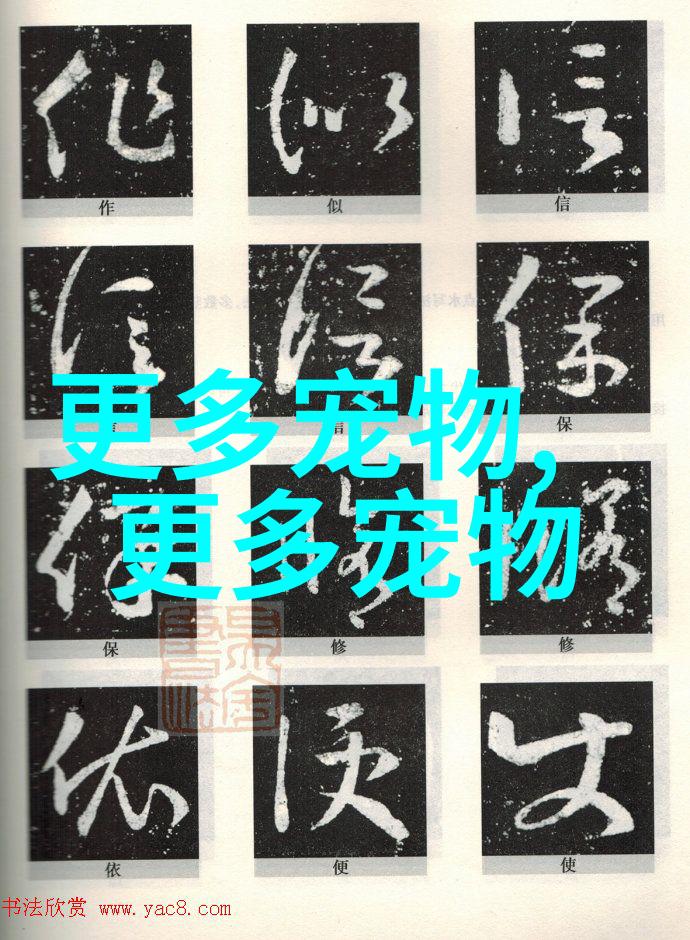 作 似 信
信 信 保
更多宠物,
更多宠物
保 修 修
依 便 使
书法欣赏 www.yac8.com